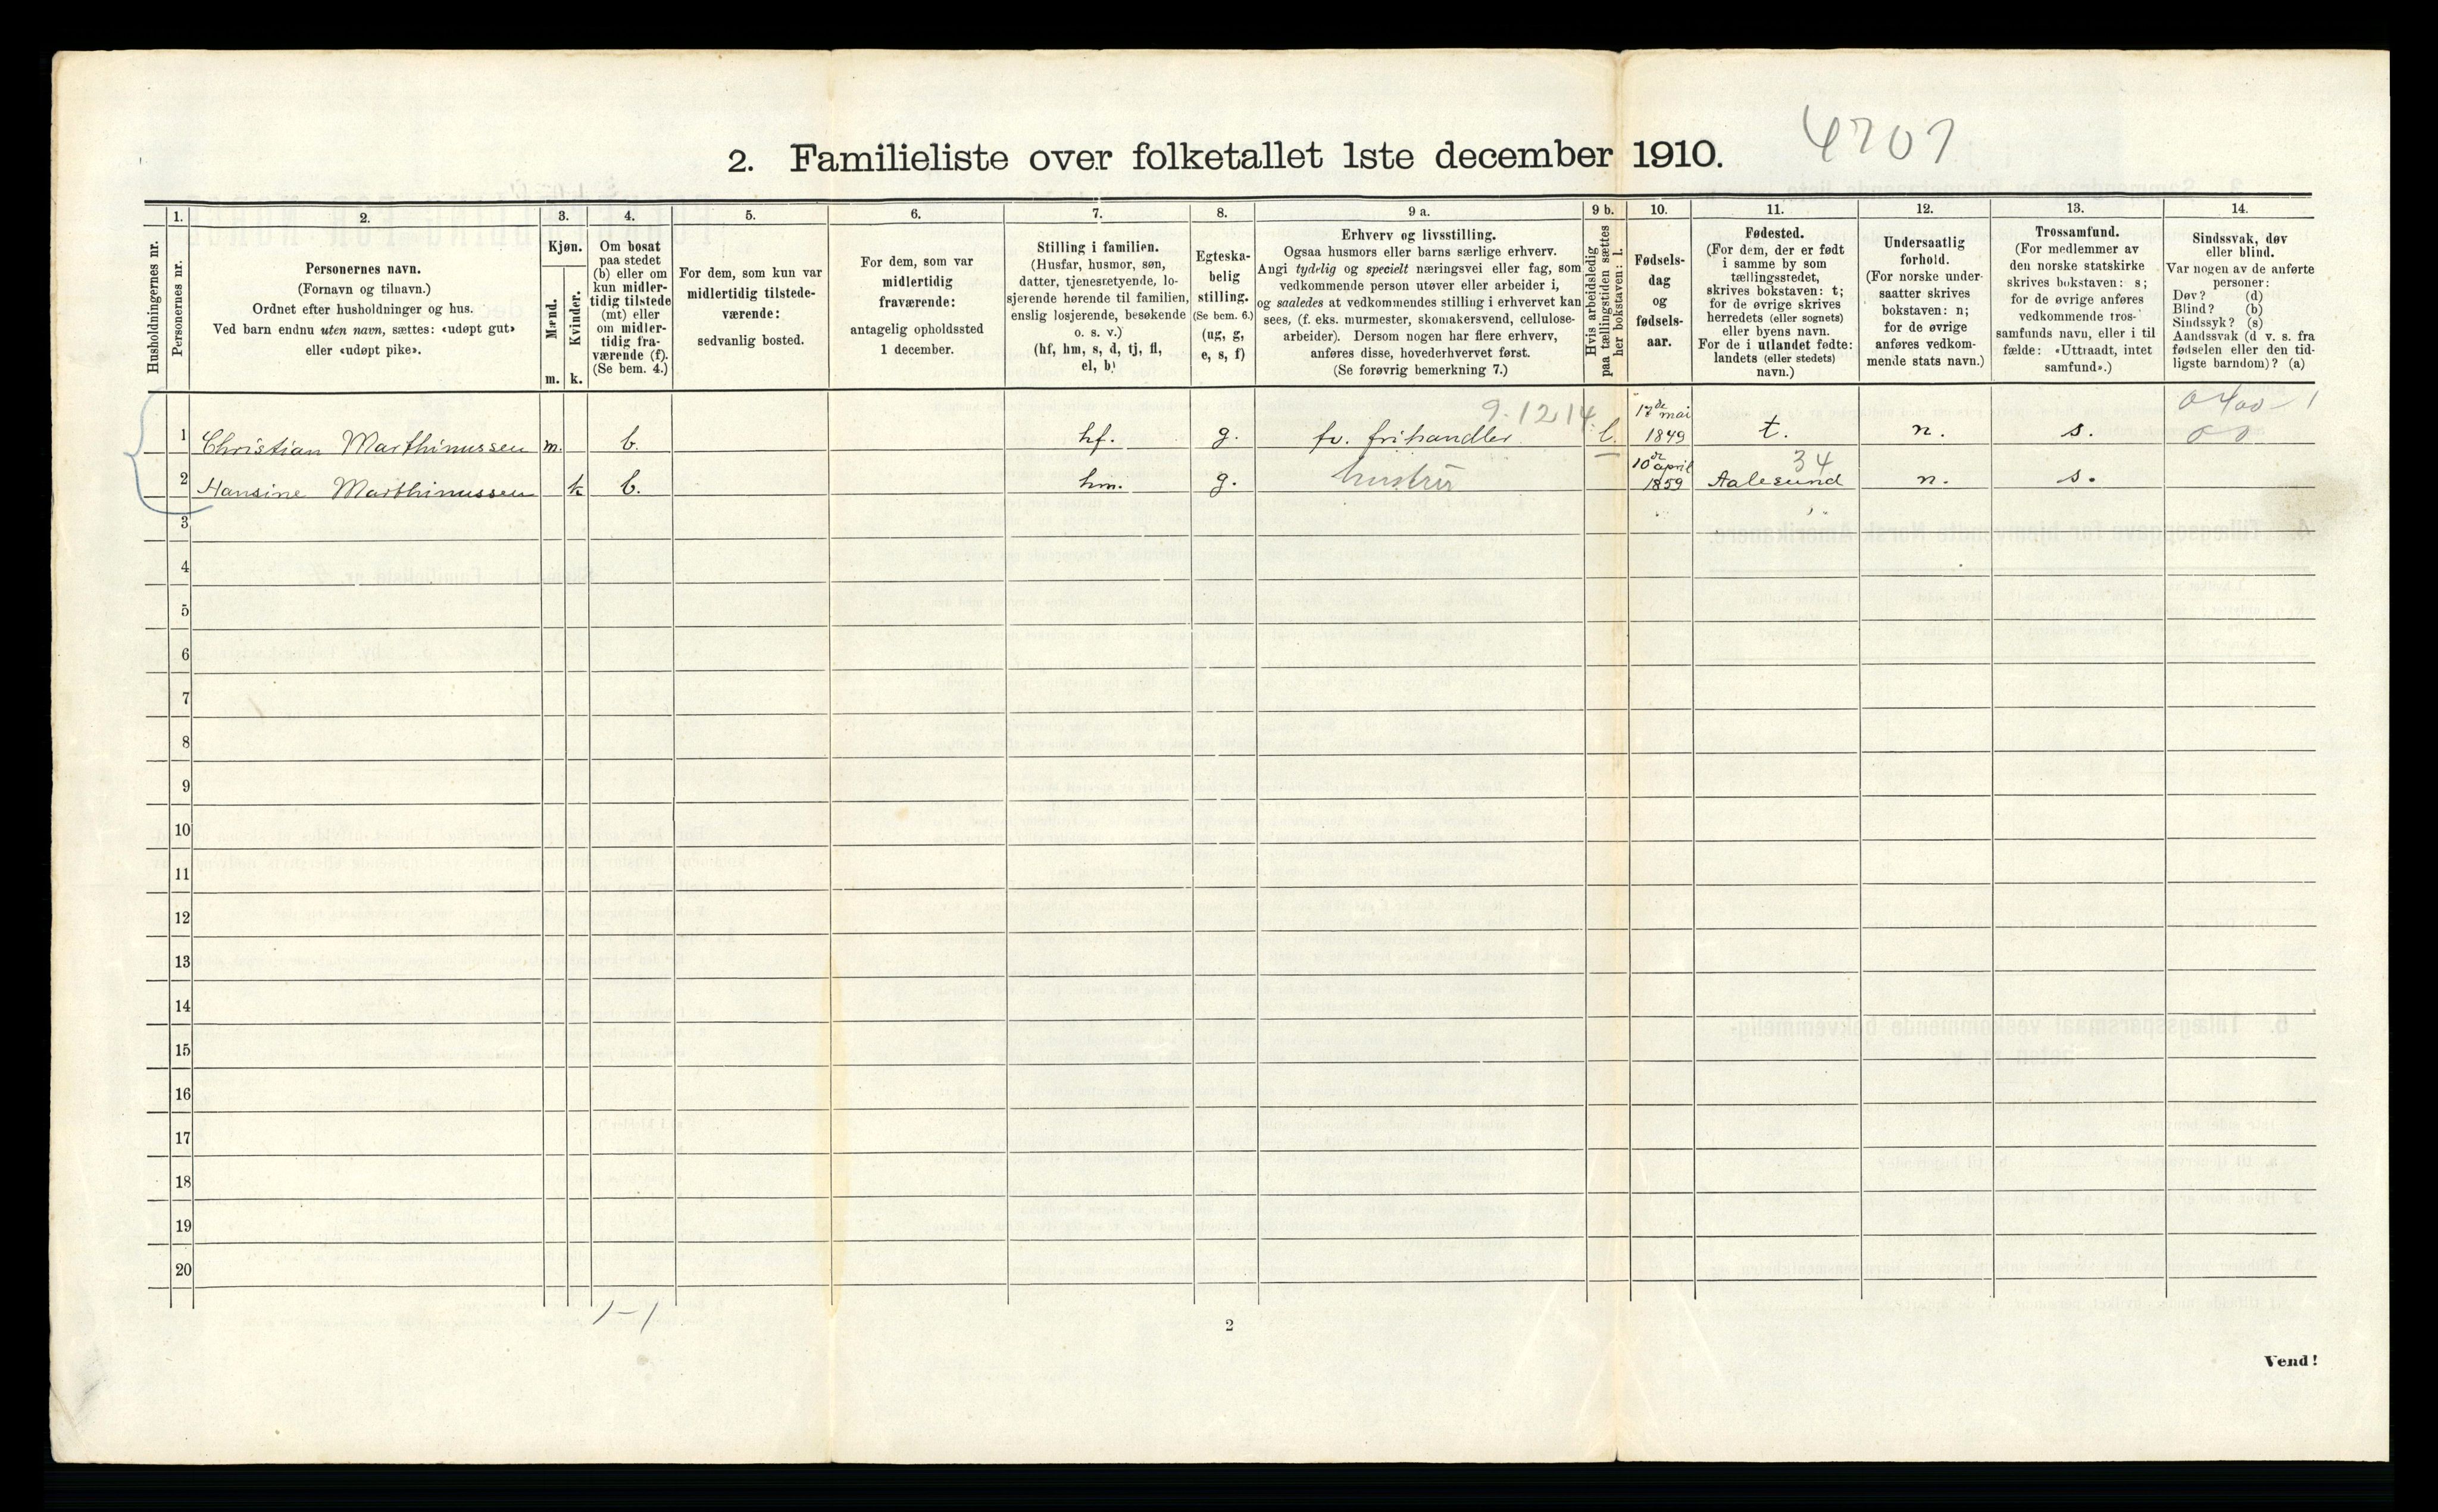 4707
2. Familieliste over folketallet 1ste december 1910.
Husholdningernes nr.
1.
Personernes nr.
2.
Personernes navn.
(Fornavn og tilnavn.)
Ordnet efter husholdninger og hus.
Ved barn endnu uten navn, sættes: «udøpt gut»
eller «udøpt pike».
3.
Kjøn.
Mænd.
Kvinder.
m. k.
4.
Om bosat
paa stedet
(b) eller om
kun midler-
tidig tilstede
(mt) eller
om midler-
tidig fra-
værende (f).
(Se bem. 4.)
5.
For dem, som kun var
midlertidig tilstede-
værende:
sedvanlig bosted.
6.
For dem, som var
midlertidig
fraværende:
antagelig opholdssted
1 december.
7.
Stilling i familien.
(Husfar, husmor, søn,
datter, tjenestetyende, lo-
sjerende hørende til familien,
enslig losjerende, besøkende
o. s. v.)
(hf, hm, s, d, tj, fl,
el, b)
8.
Egteska-
belig
stilling.
(Se bem. 6.)
(ug, g,
e, s, f)
9 a.
Erhverv og livsstilling.
Ogsaa husmors eller barns særlige erhverv.
Angi tydelig og specielt næringsvei eller fag, som
vedkommende person utøver eller arbeider i,
og saaledes at vedkommendes stilling i erhvervet kan
sees, (f. eks. murmester, skomakersvend, cellulose-
arbeider). Dersom nogen har flere erhverv,
anføres disse, hovederhvervet først.
(Se forøvrig bemerkning 7.)
9 b.
Hvis arbeidsledig
paa tællingstiden sættes
her bokstaven: l.
10.
Fødsels-
dag
og
fødsels-
aar.
11.
Fødested.
(For dem, der er født
i samme by som
tællingsstedet,
skrives bokstaven: t;
for de øvrige skrives
herredets (eller sognets)
eller byens navn.
For de i utlandet fødte:
landets (eller stedets)
navn.)
12.
Undersaatlig
forhold.
(For norske under-
saatter skrives
bokstaven: n;
for de øvrige
anføres vedkom-
mende stats navn.)
13.
Trossamfund.
(For medlemmer av
den norske statskirke
skrives bokstaven: s;
for de øvrige anføres
vedkommende tros-
samfunds navn, eller i til
fælde: «Uttraadt, intet
samfund».)
14.
Sindssvak, døv
eller blind.
Var nogen av de anførte
personer:
Døv? (d)
Blind? (b)
Sindssyk? (s)
Aandssvak (d v. s. fra
fødselen eller den tid-
ligste barndom)? (a)
9.12 14
1 Christian Marthinussen m. b. hf. g. fv. frihandler l. 17de mai 1849 t. n. s.
34
2 Hansine Marthinussen k b. hm. g. hustru 10de april 1859 Aalesund n. s.
3
4
5
6
7
8
9
10
11
12
13
14
15
16
17
18
19
20
1-1
2
Vend!